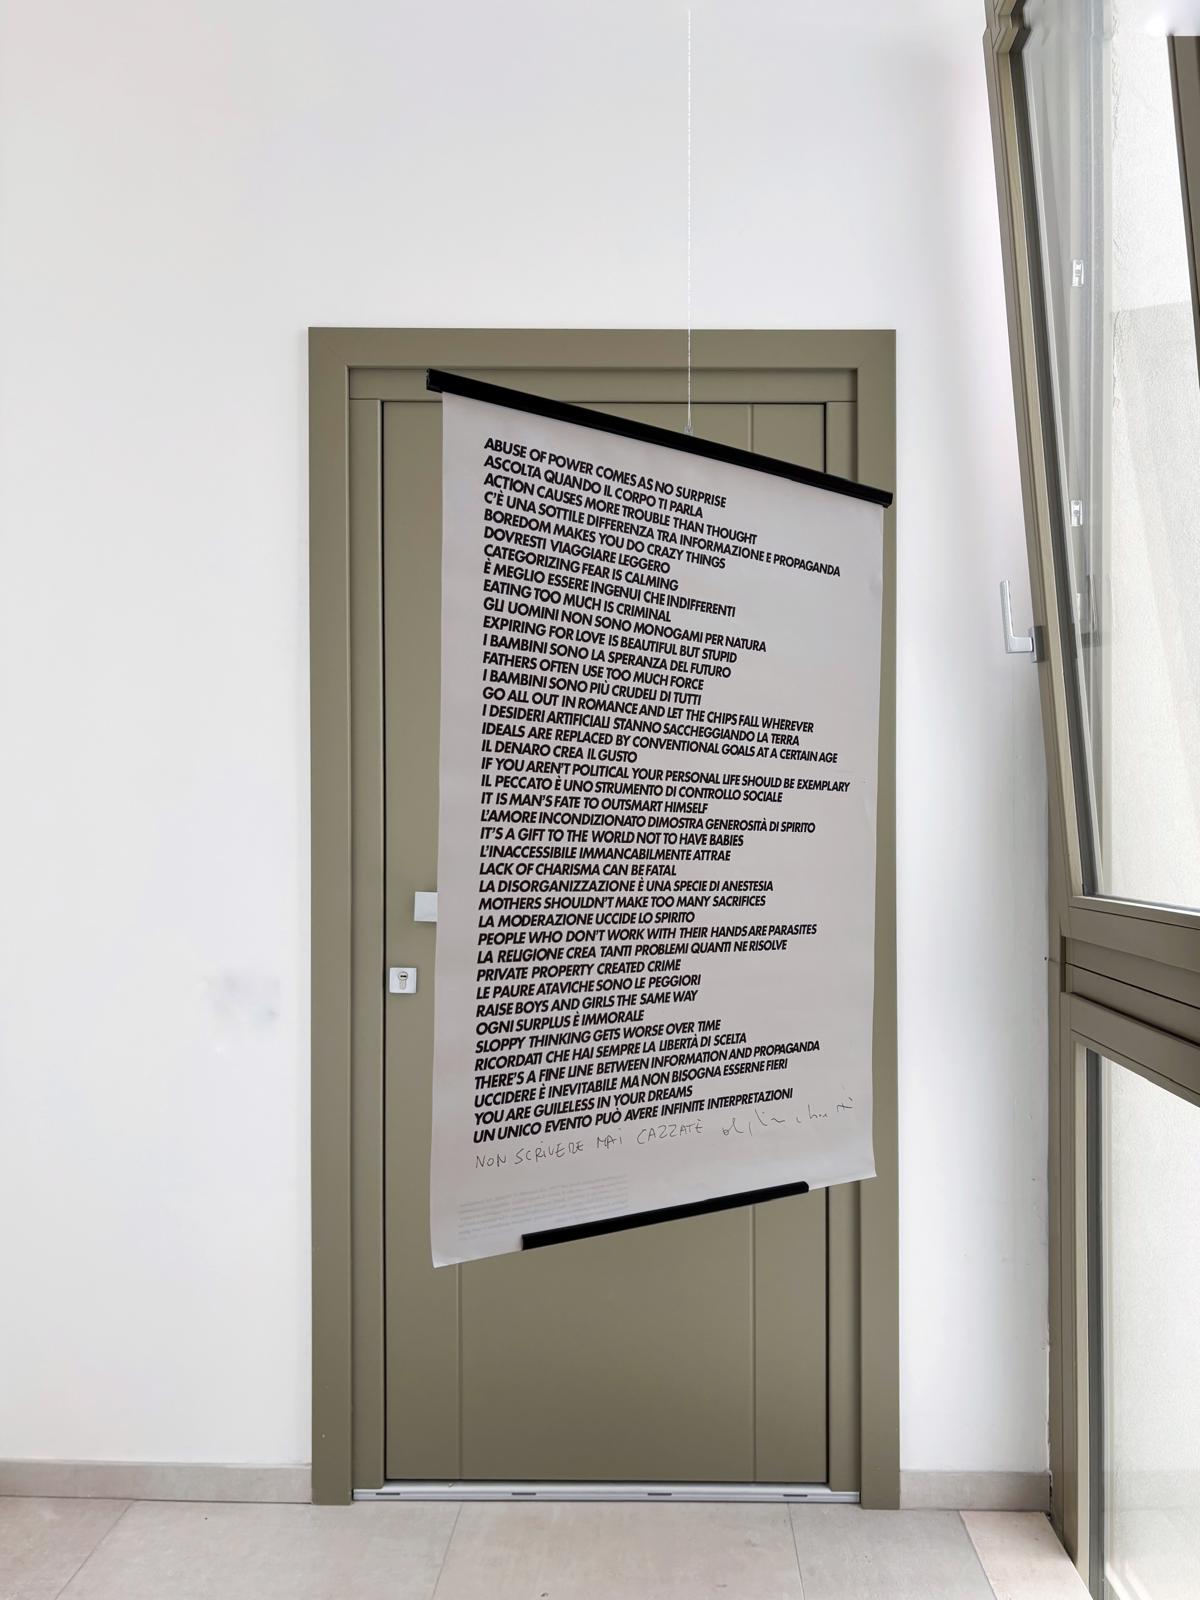 ABUSE OF POWER COMES AS NO SURPRISE
ASCOLTA QUANDO IL CORPO TI PARLA
ACTION CAUSES MORE TROUBLE THAN THOUGHT
C'È UNA SOTTILE DIFFERENZA TRA INFORMAZIONE E PROPAGANDA
BOREDOM MAKES YOU DO CRAZY THINGS
DOVRESTI VIAGGIARE LEGGERO
CATEGORIZING FEAR IS CALMING
È MEGLIO ESSERE INGENUI CHE INDIFFERENTI
EATING TOO MUCH IS CRIMINAL
GLI UOMINI NON SONO MONOGAMI PER NATURA
EXPIRING FOR LOVE IS BEAUTIFUL BUT STUPID
I BAMBINI SONO LA SPERANZA DEL FUTURO
FATHERS OFTEN USE TOO MUCH FORCE
I BAMBINI SONO PIÙ CRUDELI DI TUTTI
GO ALL OUT IN ROMANCE AND LET THE CHIPS FALL WHEREVER
I DESIDERI ARTIFICIALI STANNO SACCHEGGIANDO LA TERRA
IDEALS ARE REPLACED BY CONVENTIONAL GOALS AT A CERTAIN AGE
IL DENARO CREA IL GUSTO
IF YOU AREN'T POLITICAL YOUR PERSONAL LIFE SHOULD BE EXEMPLARY
IL PECCATO È UNO STRUMENTO DI CONTROLLO SOCIALE
IT IS MAN'S FATE TO OUTSMART HIMSELF
L'AMORE INCONDIZIONATO DIMOSTRA GENEROSITÀ DI SPIRITO
IT'S A GIFT TO THE WORLD NOT TO HAVE BABIES
L'INACCESSIBILE IMMANCABILMENTE ATTRAE
LACK OF CHARISMA CAN BE FATAL
LA DISORGANIZZAZIONE È UNA SPECIE DI ANESTESIA
MOTHERS SHOULDN'T MAKE TOO MANY SACRIFICES
LA MODERAZIONE UCCIDE LO SPIRITO
PEOPLE WHO DON'T WORK WITH THEIR HANDS ARE PARASITES
LA RELIGIONE CREA TANTI PROBLEMI QUANTI NE RISOLVE
PRIVATE PROPERTY CREATED CRIME
LE PAURE ATAVICHE SONO LE PEGGIORI
RAISE BOYS AND GIRLS THE SAME WAY
OGNI SURPLUS È IMMORALE
SLOPPY THINKING GETS WORSE OVER TIME
RICORDATI CHE HAI SEMPRE LA LIBERTÀ DI SCELTA
THERE'S A FINE LINE BETWEEN INFORMATION AND PROPAGANDA
UCCIDERE È INEVITABILE MA NON BISOGNA ESSERNE FIERI
YOU ARE GUILELESS IN YOUR DREAMS
UN UNICO EVENTO PUÒ AVERE INFINITE INTERPRETAZIONI
NON SCRIVERE MAI CAZZATE